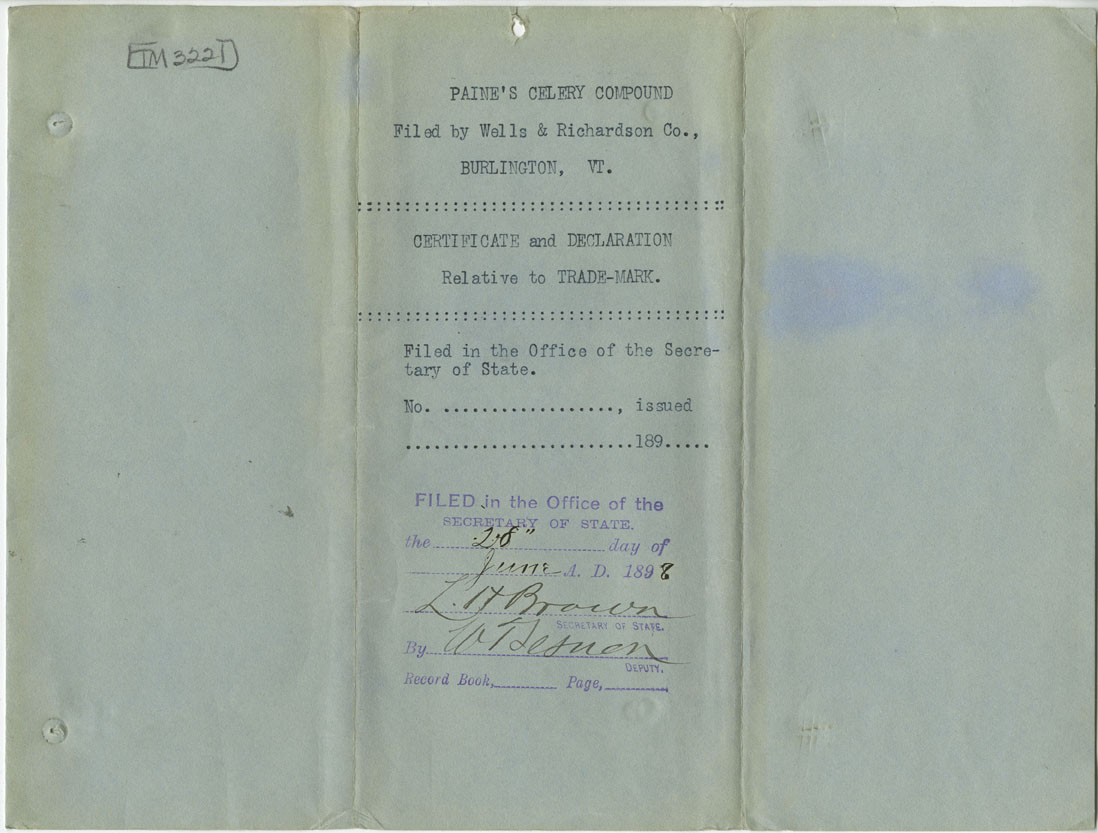 TM 3221
PAINE'S CELERY COMPOUND
Filed by Wells & Richardson Co.,
BURLINGTON, VT.
::::::::::::::::::::::::::::::::::::::::
CERTIFICATE and DECLARATION
Relative to TRADE-MARK.
::::::::::::::::::::::::::::::::::::::::
Filed in the Office of the Secre-
tary of State.
No. ..................., issued
.........................189.....
FILED in the Office of the
SECRETARY OF STATE.
the 28" day of
June A. D. 1898
L. H Brown
SECRETARY OF STATE.
By
DEPUTY.
Record Book, Page,